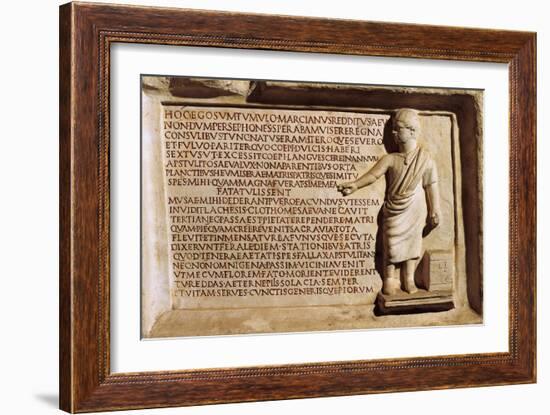 HOC EGO SVM TVMVLO MARCIANVS REDDITVS AEVO
NONDVM PERSEPHONES SPERABAM VISERE REGNA
CONSVLIBVS TVNC NATVS ERAM ITERO QVE SEVERO
ET FVLVO PARITER QVO COEPI DVLCIS HABERI
SEXTVS VT EXCESSIT COEPI LANGVESCERE IN ANNVM
APSTVLIT NON PARENTIBVS ORTA
PLANCTIBVS HEV MISERAE MATRIS PATRISQVE
SPES MIHI QVAM MAGNA FVERAT SI ME MEA
FATA TVLISSENT
MVSAE MIHI DEDERANT PVERO FACVNDVS VT ESSEM
INVIDIT LACHESIS CLOTHO ME SAEVA NECAVIT
TERTIA NEC PASSA EST PIETATE REPENDERE MATRI
QVAM PIE QVAM CREBRE VENIT SACRA VIA TOTA
FLEVIT ET INMENSA TVRBA FVNVSQVE SECVTA
DIXERVNT FERALE DIEM STATIONIBVS ATRIS
QVOD TENERAE AETATI SPES FALLAX APSTVLIT
NEC NON OMNIGENA PASSIM VICINIA VENIT
VT MECVM FLOREM FATO MORIENTE VIDERENT
TV REDDAS AETERNE PIIS SOLACIA SEMPER
ET VITAM SERVES CVNCTIS GENERISQVE PIORVM